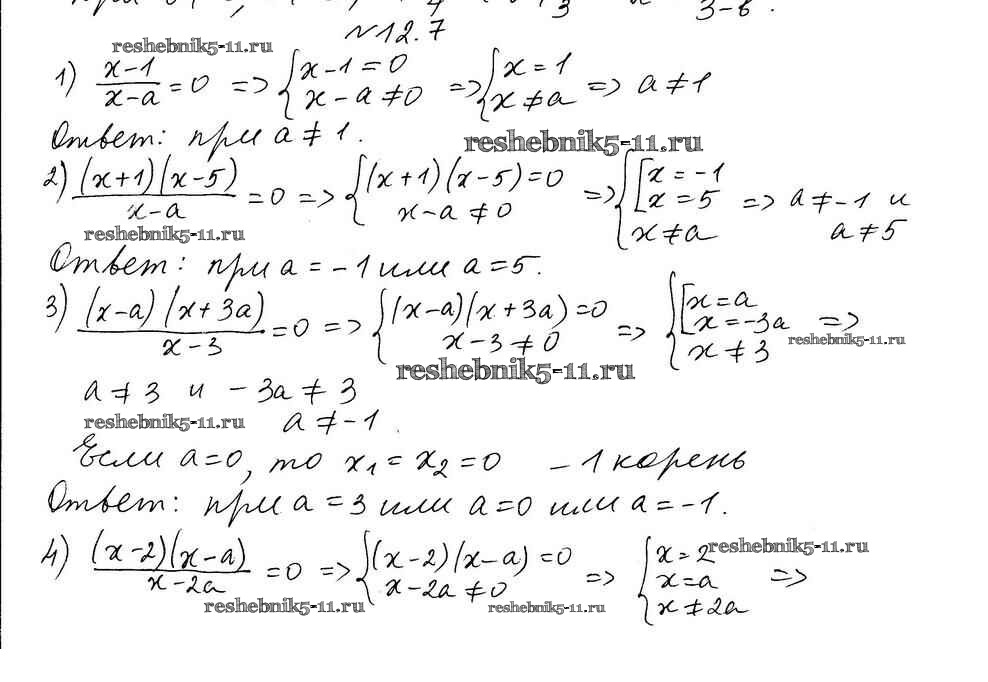 №12.7
reshebnik5-11.ru
1) (x-1)/(x-a) = 0 => { x-1=0; x-a≠0 => { x=1; x≠a => a≠1
Ответ: при a≠1.
reshebnik5-11.ru
2) (x+1)(x-5)/(x-a) = 0 => { (x+1)(x-5)=0; x-a≠0 => { [ x=-1; x=5; x≠a => a≠-1 и a≠5
reshebnik5-11.ru
Ответ: при a=-1 или a=5.
3) (x-a)(x+3a)/(x-3) = 0 => { (x-a)(x+3a)=0; x-3≠0 => { [ x=a; x=-3a; x≠3 =>
reshebnik5-11.ru
reshebnik5-11.ru
a≠3 и -3a≠3
reshebnik5-11.ru
a≠-1.
Если a=0, то x₁=x₂=0 - 1 корень
Ответ: при a=3 или a=0 или a=-1.
4) (x-2)(x-a)/(x-2a) = 0 => { (x-2)(x-a)=0; x-2a≠0 => { x=2; x=a; x≠2a =>
reshebnik5-11.ru
reshebnik5-11.ru
reshebnik5-11.ru